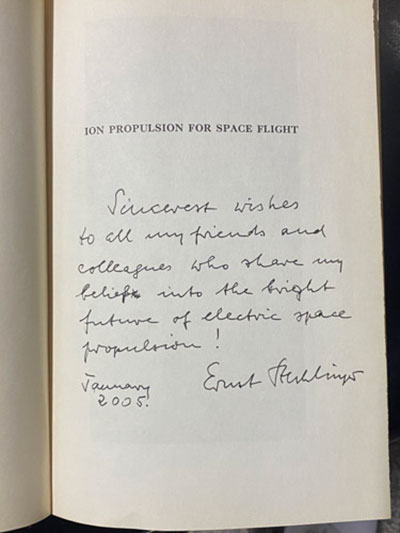 ION PROPULSION FOR SPACE FLIGHT
Sincerest wishes
to all my friends and
colleagues who share my
belief into the bright
future of electric space
propulsion!
January
2005.
Ernst Stuhlinger